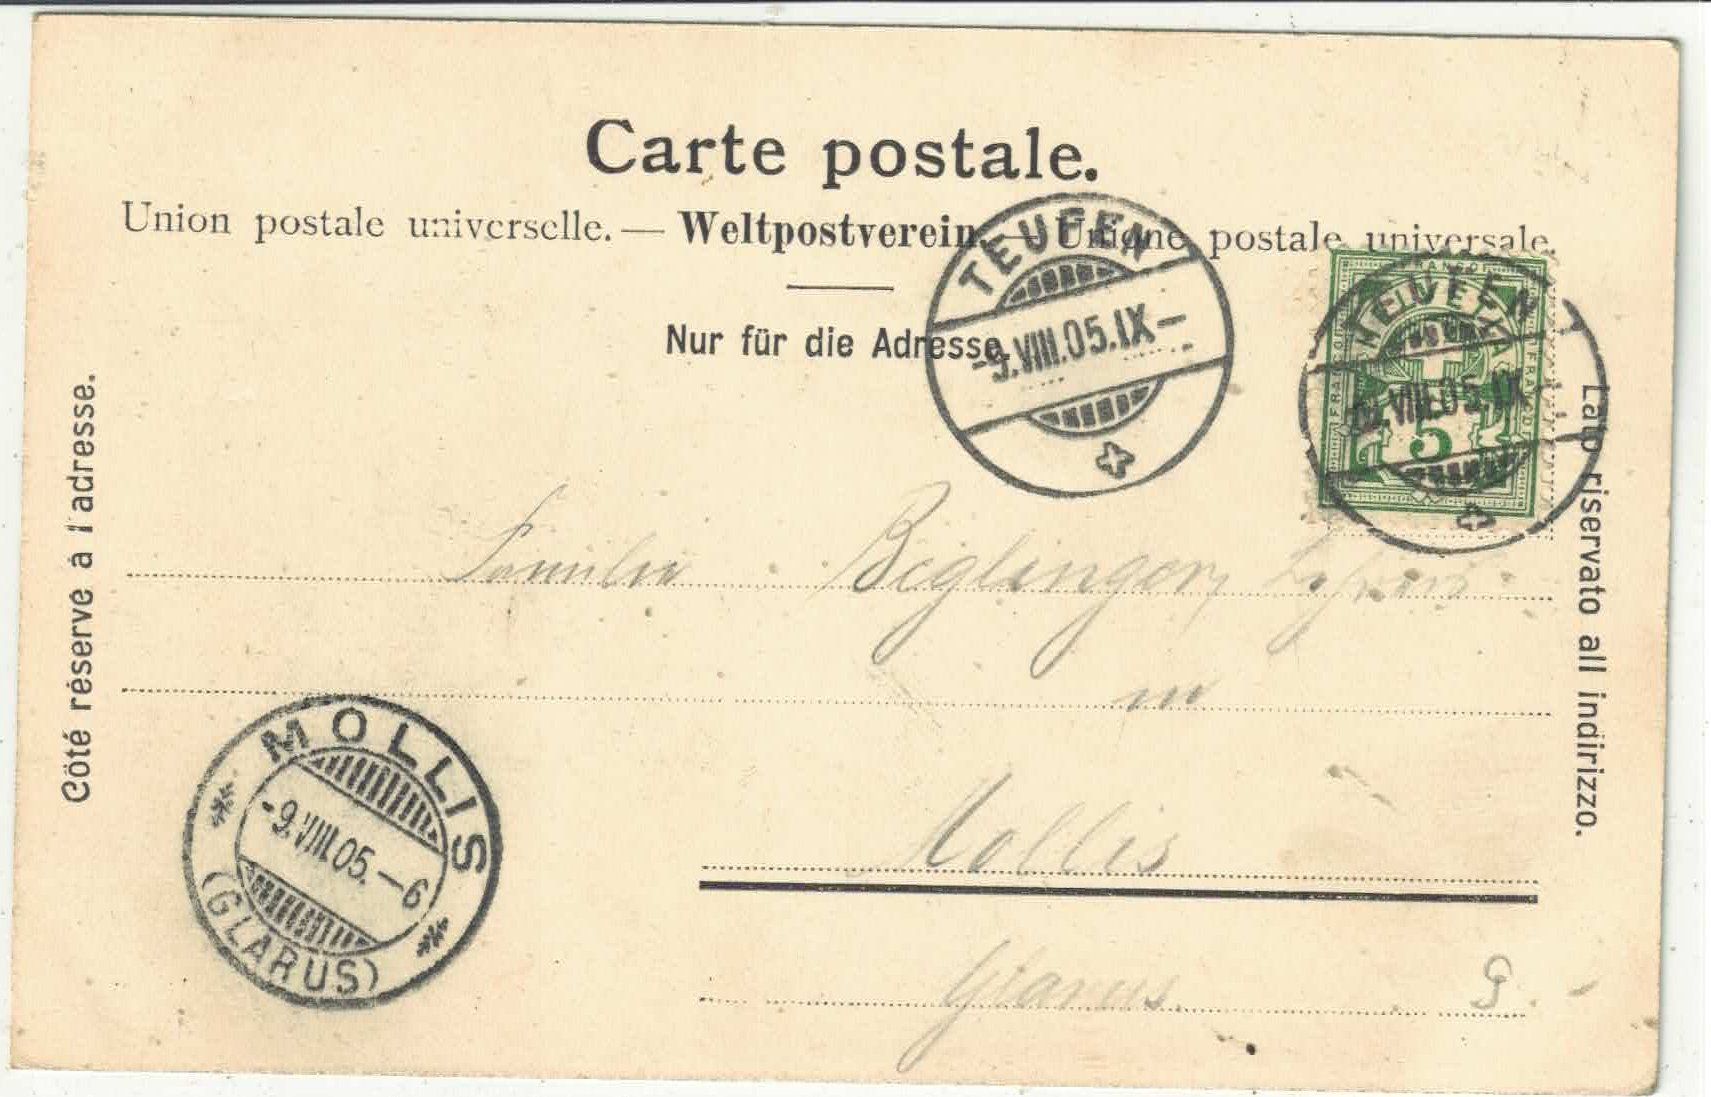 Carte postale.
Union postale universelle. — Weltpostverein. — Unione postale universale.
Nur für die Adresse.
Côté réservé à l'adresse.
Lato riservato all indirizzo.
TEUFEN
-9.VIII.05.IX-
TEUFEN
VIII.05.IX-
FRANCO
5
Familie Beglinger,
in
Mollis
Glarus
MOLLIS
-9.VIII.05.-6
(GLARUS)